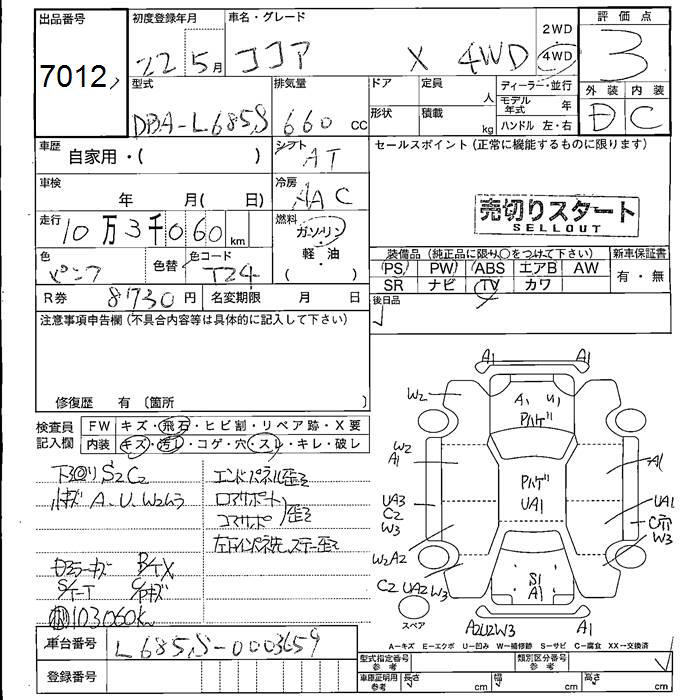 出品番号 初度登録年月 車名・グレード 評価点
7012 22年5月 ココア X 4WD 2WD・4WD 3
型式 排気量 ドア 定員 人 ディーラー・並行 外装 内装
DBA-L685S 660 cc 形状 積載 kg モデル年式 年 ハンドル 左・右 D C
車歴 自家用・( ) シフト AT セールスポイント(正常に機能するものに限ります)
車検 年 月( 日) 冷房 AAC
売切りスタート
SELLOUT
走行 10万3千060km 燃料 ガソリン・軽・油
装備品(純正品に限り○をつけて下さい) 新車保証書
色 ピンク 色替 色コード T24
PS PW ABS エアB AW 有・無
SR ナビ TV カワ
R券 8730円 名変期限 月 日 後日品
注意事項申告欄(不具合内容等は具体的に記入して下さい)
修復歴 有 〔箇所 〕
検査員記入欄 FW キズ・飛石・ヒビ割・リペア跡・X要
内装 キズ・汚れ・コゲ・穴・スレ・キレ・破レ
下回り S2C2 エンドパネル歪ミ
A.U.W2ムラ ロアサポート
コアサポ 歪ミ
B/TX
103060km
A1 A1
W2 A1 U1
Pハゲ
W2
A1 A1
Pハゲ
UA1
UA3 UA1
C2
W3 W3
W2A2
C2 UA2 W3
S1
A1
スペア
A2U2W3 A1
A=キズ E=エクボ U=凹み W=補修跡 S=サビ C=腐食 XX=交換済
車台番号 L685S-0003659
型式指定番号 参考 類別区分番号 参考
登録番号 車庫証明用 参考 長さ cm 幅 cm 高さ cm